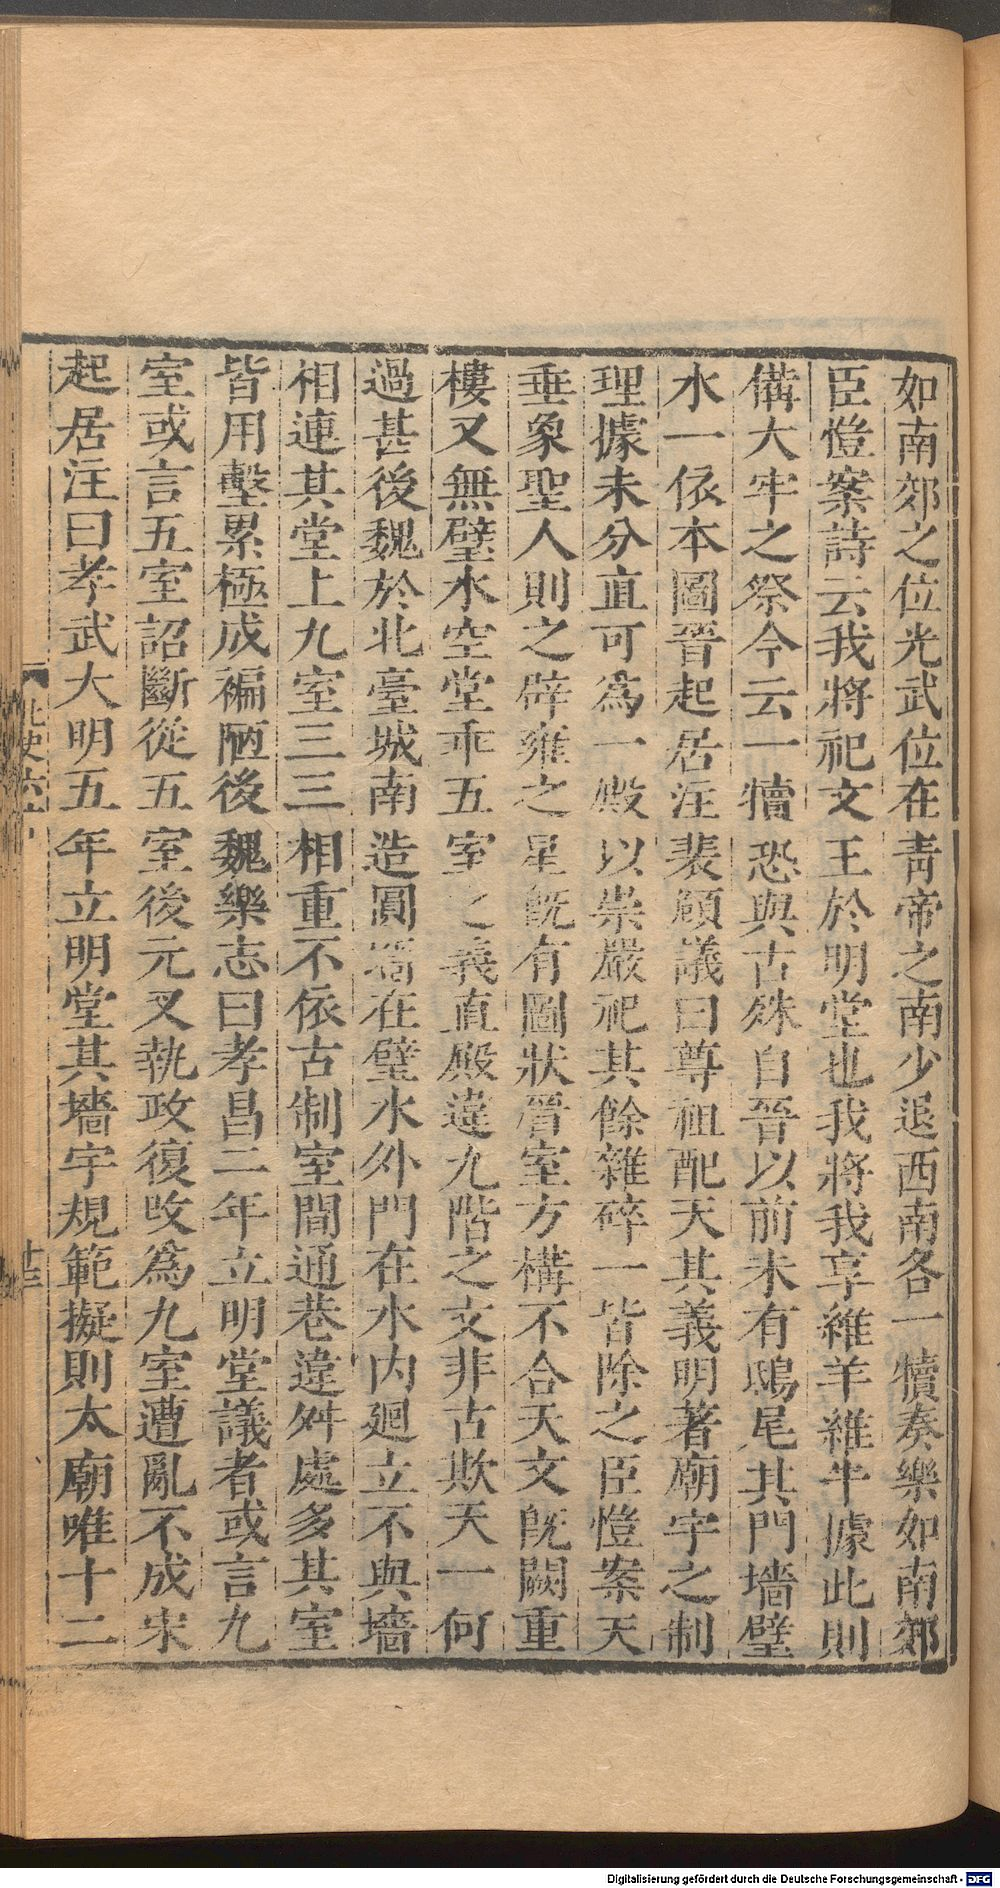 如南郊之位光武位在青帝之南少退西南各一犢奏樂如南郊
臣愷案詩云我將祀文王於明堂也我將我享維羊維牛據此則
備大牢之祭今云一犢恐與古殊自晉以前未有鴟尾其門墻璧
水一依本圖晉起居注裴頠議曰尊祖配天其義明著廟宇之制
理據未分直可為一殿以崇嚴祀其餘雜碎一皆除之臣愷案天
垂象聖人則之辟雍之星旣有圖狀晉室方構不合天文旣闕重
樓又無璧水空堂乖五室之義直殿違九階之文非古欺天一何
過甚後魏於北臺城南造圓墻在璧水外門在水內迴立不與墻
相連其堂上九室三三相重不依古制室間通巷違舛處多其室
皆用墼累極成褊陋後魏樂志曰孝昌二年立明堂議者或言九
室或言五室詔斷從五室後元叉執政復改為九室遭亂不成宋
起居注曰孝武大明五年立明堂其墻宇規範擬則太廟唯十二
北史六十
十三
Digitalisierung gefördert durch die Deutsche Forschungsgemeinschaft - DFG